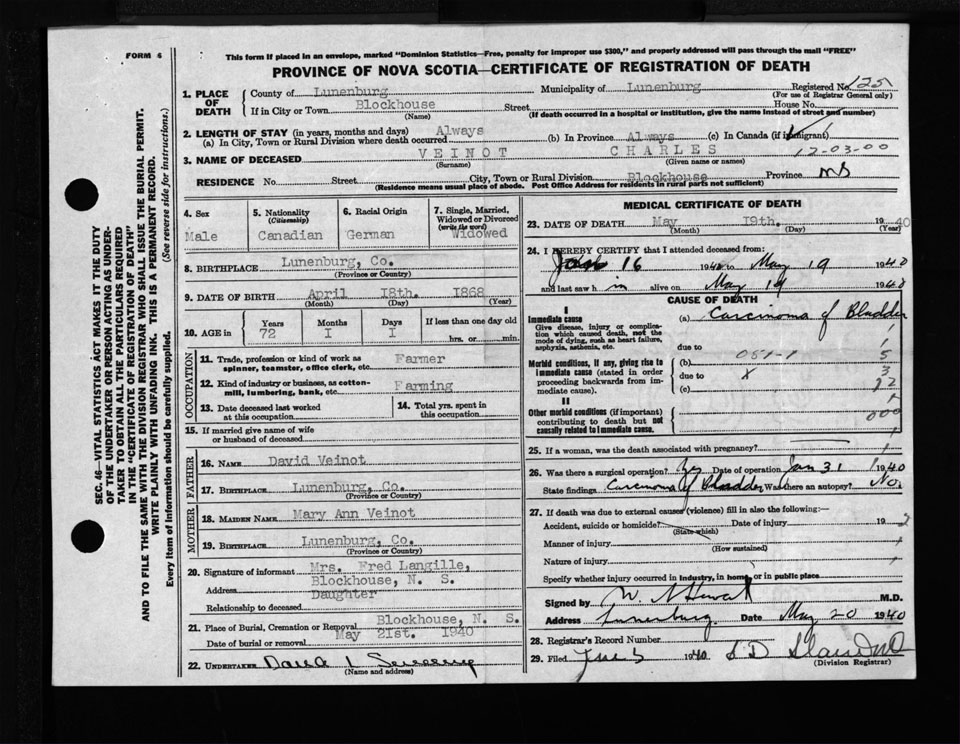 FORM 6
This form if placed in an envelope, marked "Dominion Statistics—Free, penalty for improper use $300," and properly addressed will pass through the mail "FREE"
PROVINCE OF NOVA SCOTIA—CERTIFICATE OF REGISTRATION OF DEATH
SEC. 46—VITAL STATISTICS ACT MAKES IT THE DUTY
OF THE UNDERTAKER OR PERSON ACTING AS UNDER-
TAKER TO OBTAIN ALL THE PARTICULARS REQUIRED
IN THE "CERTIFICATE OF REGISTRATION OF DEATH"
AND TO FILE THE SAME WITH THE DIVISION REGISTRAR WHO SHALL ISSUE THE BURIAL PERMIT.
WRITE PLAINLY WITH UNFADING INK. THIS IS A PERMANENT RECORD.
Every item of information should be carefully supplied. (See reverse side for instructions.)
1. PLACE OF DEATH County of Lunenburg Municipality of Lunenburg Registered No. 125
(For use of Registrar General only)
If in City or Town Blockhouse Street House No.
(Name) (If death occurred in a hospital or institution, give the name instead of street and number)
2. LENGTH OF STAY (in years, months and days)
(a) In City, Town or Rural Division where death occurred Always (b) In Province Always (c) In Canada (if immigrant)
3. NAME OF DECEASED VEINOT CHARLES 12-03-00
(Surname) (Given name or names)
RESIDENCE No. Street City, Town or Rural Division Blockhouse Province NS
(Residence means usual place of abode. Post Office Address for residents in rural parts not sufficient)
4. Sex Male
5. Nationality (Citizenship) Canadian
6. Racial Origin German
7. Single, Married, Widowed or Divorced (write the word) Widowed
8. BIRTHPLACE Lunenburg, Co.
(Province or Country)
9. DATE OF BIRTH April 18th. 1868
(Month) (Day) (Year)
10. AGE IN Years 72 Months I Days I If less than one day old hrs. or min.
OCCUPATION
11. Trade, profession or kind of work as spinner, teamster, office clerk, etc. Farmer
12. Kind of industry or business, as cotton-mill, lumbering, bank, etc. Farming
13. Date deceased last worked at this occupation
14. Total yrs. spent in this occupation
15. If married give name of wife or husband of deceased
FATHER
16. NAME David Veinot
17. BIRTHPLACE Lunenburg, Co.
(Province or Country)
MOTHER
18. MAIDEN NAME Mary Ann Veinot
19. BIRTHPLACE Lunenburg, Co.
(Province or Country)
20. Signature of informant Mrs. Fred Langille,
Address Blockhouse, N. S.
Relationship to deceased Daughter
21. Place of Burial, Cremation or Removal Blockhouse, N. S.
Date of burial or removal May 21st. 1940
22. UNDERTAKER
(Name and address)
MEDICAL CERTIFICATE OF DEATH
23. DATE OF DEATH May 19th. 1940
(Month) (Day) (Year)
24. I HEREBY CERTIFY that I attended deceased from:
Jan 16 1940 to May 19 1940
and last saw h im alive on May 19 1940
CAUSE OF DEATH
I
Immediate cause
Give disease, injury or complication which caused death, not the mode of dying, such as heart failure, asphyxia, asthenia, etc.
(a) Carcinoma of Bladder
due to
Morbid conditions, if any, giving rise to immediate cause (stated in order proceeding backwards from immediate cause).
(b) 051-1
due to X
(c)
II
Other morbid conditions (if important) contributing to death but not causally related to immediate cause.
000
25. If a woman, was the death associated with pregnancy?
26. Was there a surgical operation? Yes Date of operation Jan 31 1940
State findings Carcinoma of Bladder Was there an autopsy? No.
27. If death was due to external causes (violence) fill in also the following:—
Accident, suicide or homicide? Date of injury 19
(State which)
Manner of injury
(How sustained)
Nature of injury
Specify whether injury occurred in industry, in home, or in public place
Signed by M.D.
Address Lunenburg. Date May 20 1940
28. Registrar's Record Number
29. Filed 1940
(Division Registrar)